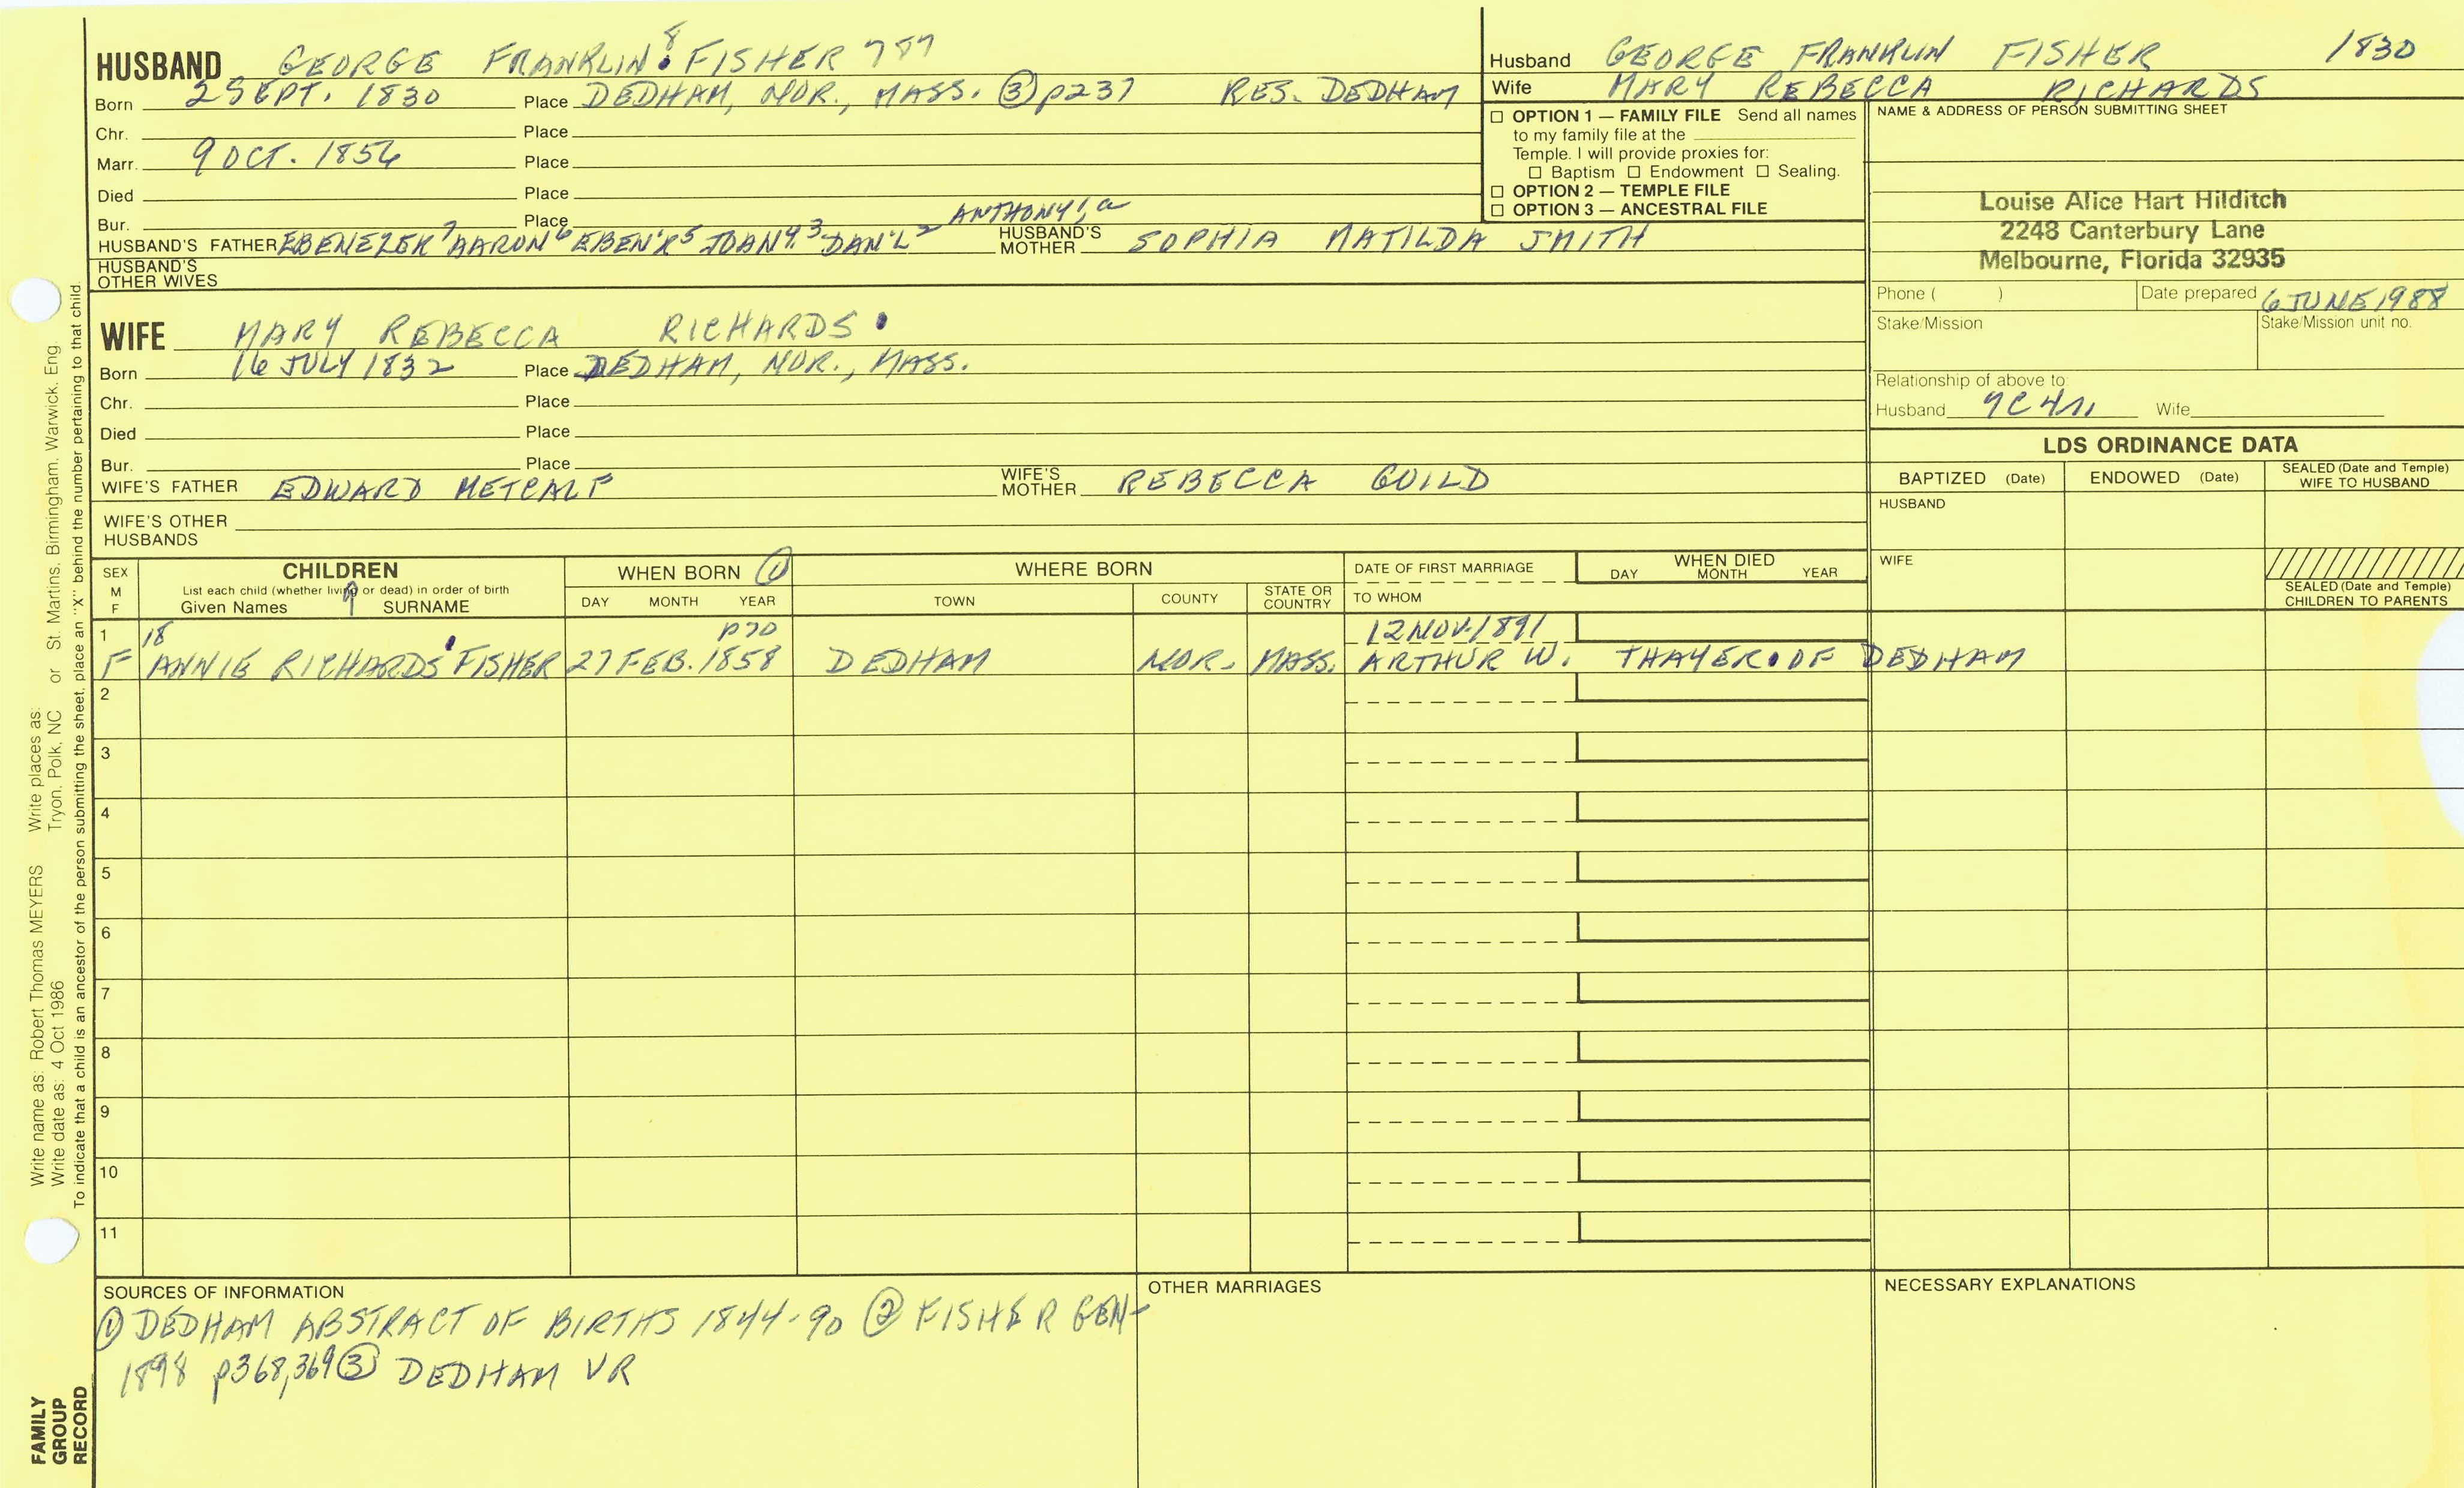 HUSBAND GEORGE FRANKLIN 8 FISHER 787
Born 2 SEPT. 1830 Place DEDHAM, NOR., MASS. ③ p237 RES. DEDHAM
Chr. Place
Marr. 9 OCT. 1856 Place
Died Place
Bur. Place
HUSBAND'S FATHER EBENEZER 7 AARON 6 EBEN'R 5 JOAN 4. 3 DAN'L 2 ANTHONY 1, a HUSBAND'S MOTHER SOPHIA MATILDA SMITH
HUSBAND'S OTHER WIVES
Husband GEORGE FRANKLIN FISHER 1830
Wife MARY REBECCA RICHARDS
☐ OPTION 1 — FAMILY FILE Send all names
to my family file at the
Temple. I will provide proxies for:
☐ Baptism ☐ Endowment ☐ Sealing.
☐ OPTION 2 — TEMPLE FILE
☐ OPTION 3 — ANCESTRAL FILE
NAME & ADDRESS OF PERSON SUBMITTING SHEET
Louise Alice Hart Hilditch
2248 Canterbury Lane
Melbourne, Florida 32935
Phone ( ) Date prepared 6 JUNE 1988
Stake/Mission Stake/Mission unit no.
Relationship of above to:
Husband 9C4R Wife
WIFE MARY REBECCA RICHARDS
Born 16 JULY 1832 Place DEDHAM, NOR., MASS.
Chr. Place
Died Place
Bur. Place
WIFE'S FATHER EDWARD METCALF WIFE'S MOTHER REBECCA GUILD
WIFE'S OTHER HUSBANDS
LDS ORDINANCE DATA
BAPTIZED (Date) ENDOWED (Date) SEALED (Date and Temple) WIFE TO HUSBAND
HUSBAND
WIFE
SEALED (Date and Temple) CHILDREN TO PARENTS
SEX M F CHILDREN WHEN BORN ① WHERE BORN DATE OF FIRST MARRIAGE WHEN DIED
List each child (whether living or dead) in order of birth
Given Names SURNAME DAY MONTH YEAR TOWN COUNTY STATE OR COUNTRY TO WHOM DAY MONTH YEAR
1 18 p70 12 NOV. 1891
F ANNIE RICHARDS FISHER 27 FEB. 1858 DEDHAM NOR. MASS. ARTHUR W. THAYER OF DEDHAM
2
3
4
5
6
7
8
9
10
11
SOURCES OF INFORMATION
① DEDHAM ABSTRACT OF BIRTHS 1844-90 ② FISHER GEN-
1898 p368,369 ③ DEDHAM VR
OTHER MARRIAGES
NECESSARY EXPLANATIONS
Write name as: Robert Thomas MEYERS Write places as: St. Martins, Birmingham, Warwick, Eng.
Write date as: 4 Oct 1986 Tryon, Polk, NC or
To indicate that a child is an ancestor of the person submitting the sheet, place an "X" behind the number pertaining to that child.
FAMILY GROUP RECORD